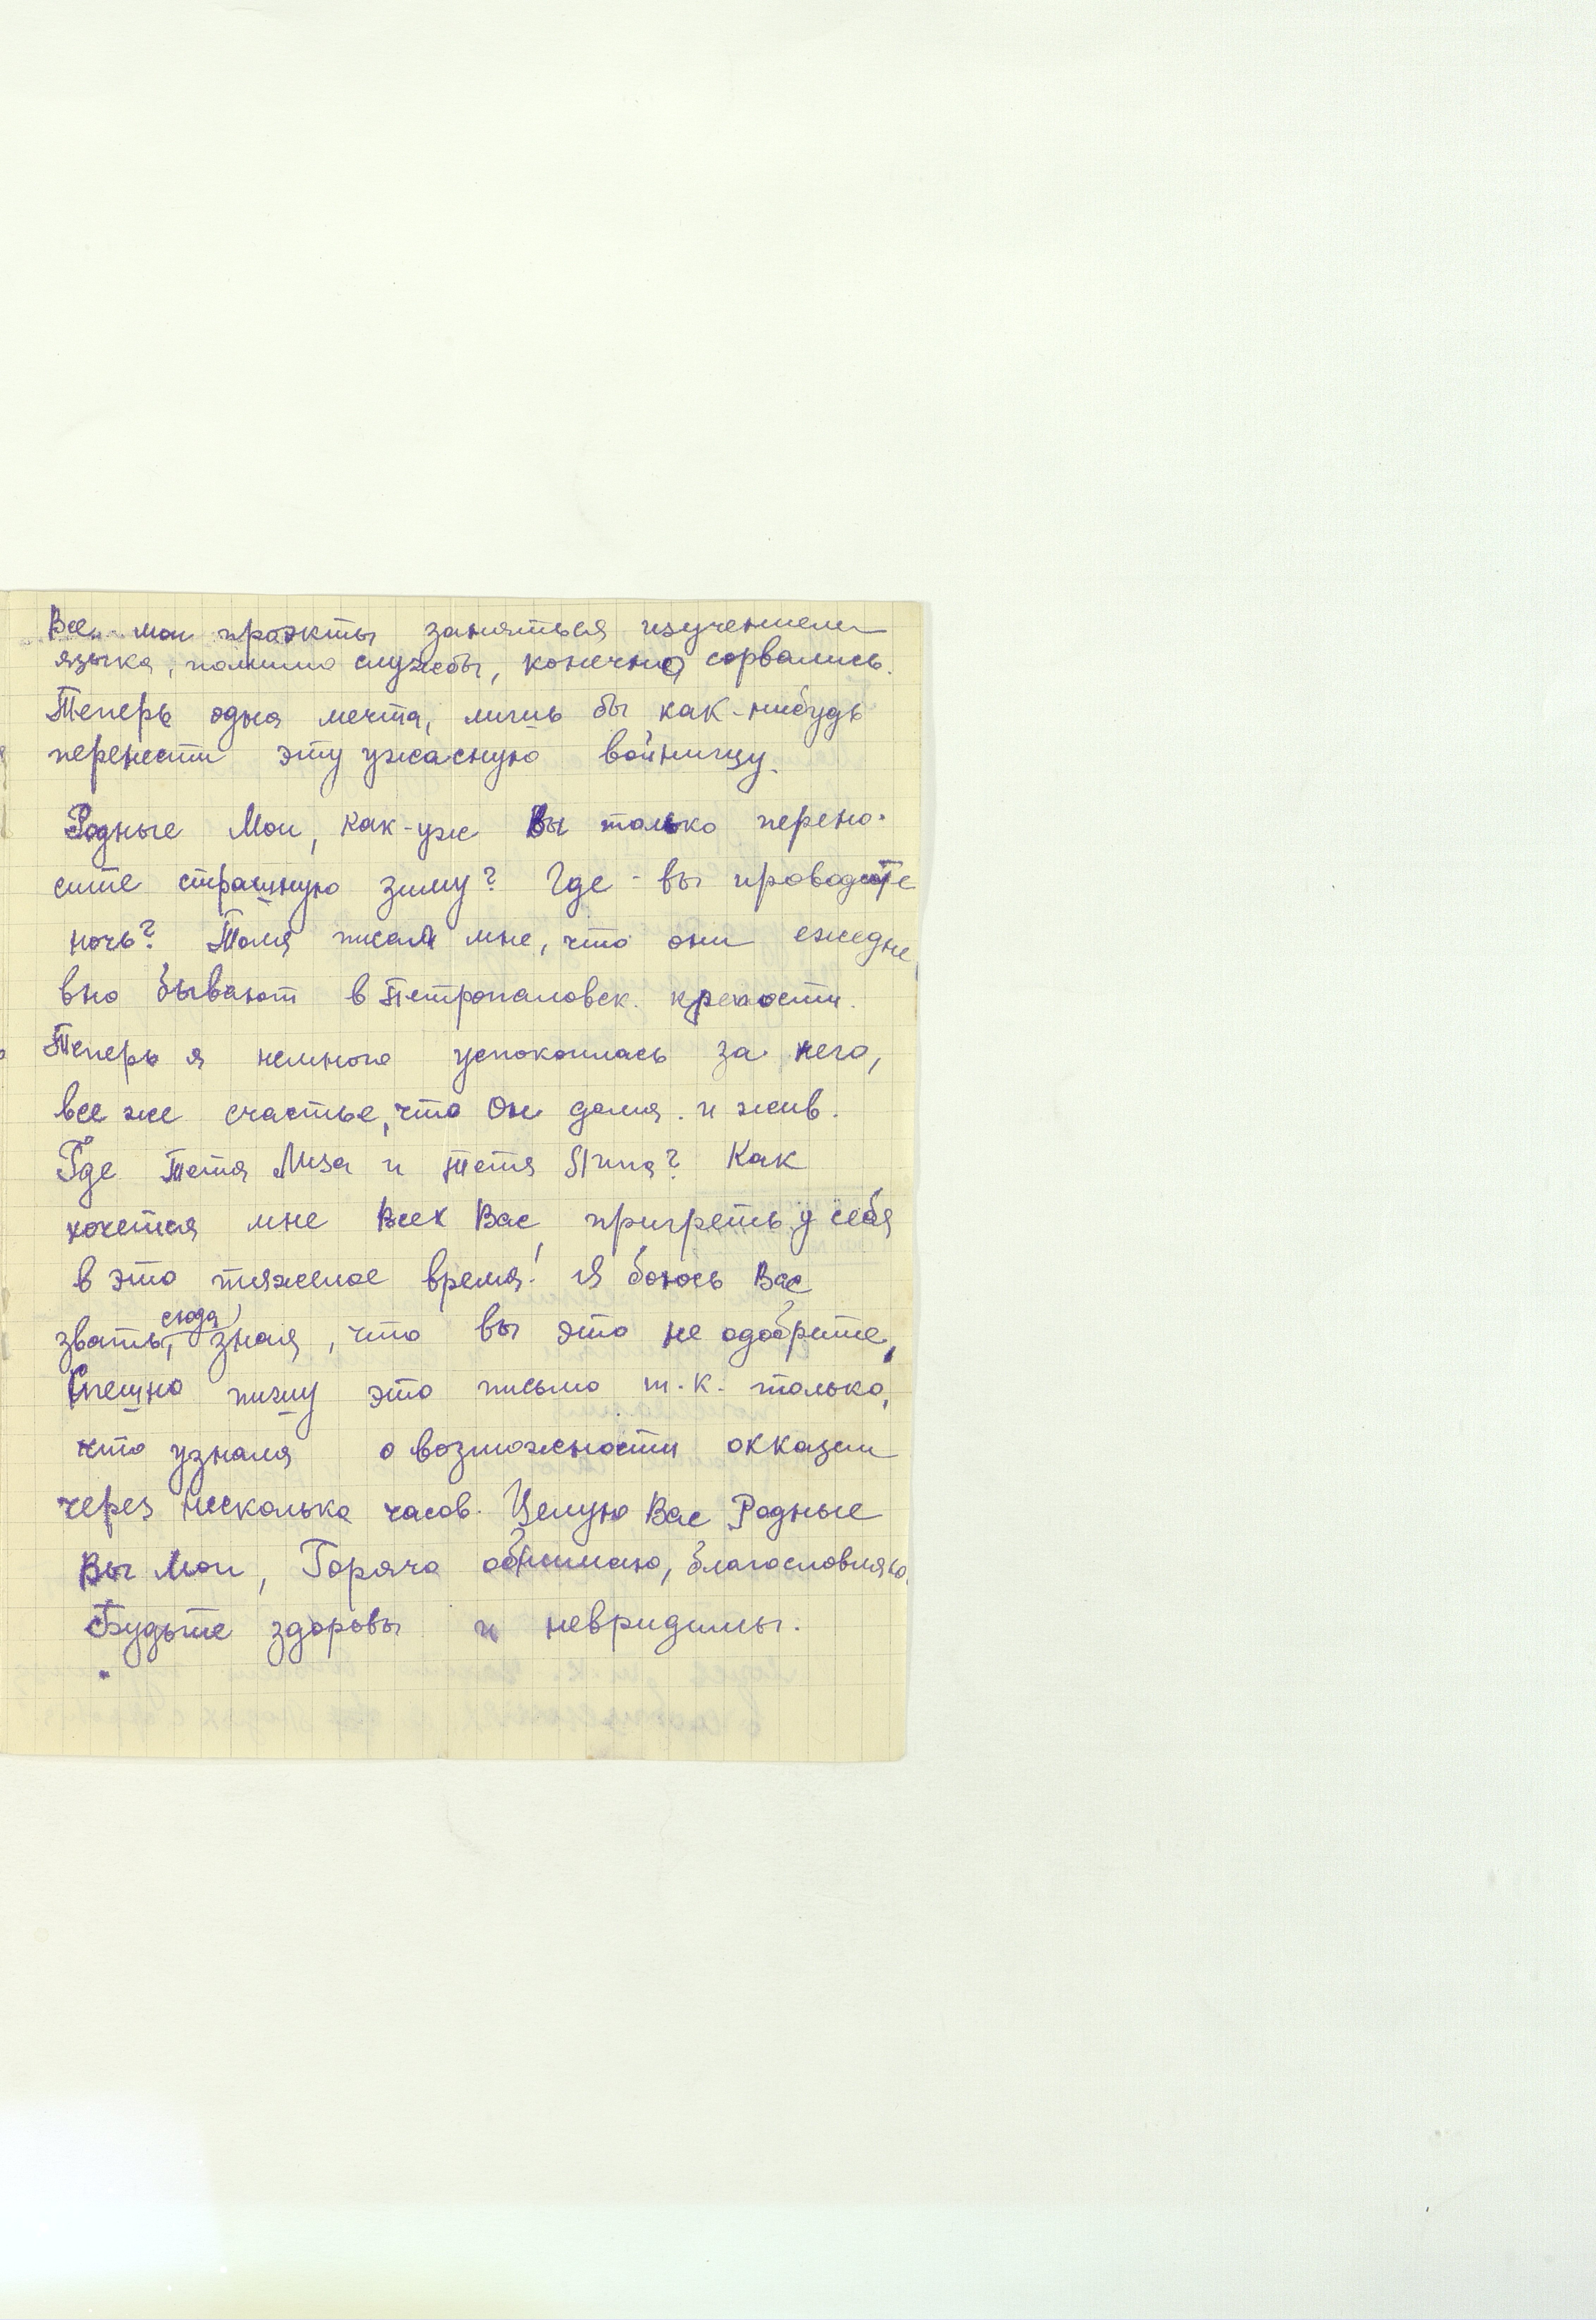 Все мои проэкты заняться изучением
языка, помимо службы, конечно сорвались.
Теперь одна мечта, лишь бы как-нибудь
перенести эту ужасную войнищу.
Родные Мои, как-уж Вы только перено-
сите страшную зиму? Где-вы проводите
ночь? Толя писал мне, что они ежедне
вно бывают в Петропаловск. крепости.
Теперь я немного успокоилась за него,
все же счастье, что Он дома и жив.
Где Тетя Лиза и тетя Янна? Как
хочется мне Всех Вас пригреть у себя
в это тяжелое время! Я боюсь Вас
звать, сюда, зная, что вы это не одобрите,
Спешно пишу это письмо т.к. только,
что узнала о возможности окказии
через несколько часов. Целую Вас Родные
Вы Мои, Горячо обнимаю, благословляю.
Будьте здоровы и невридимы.